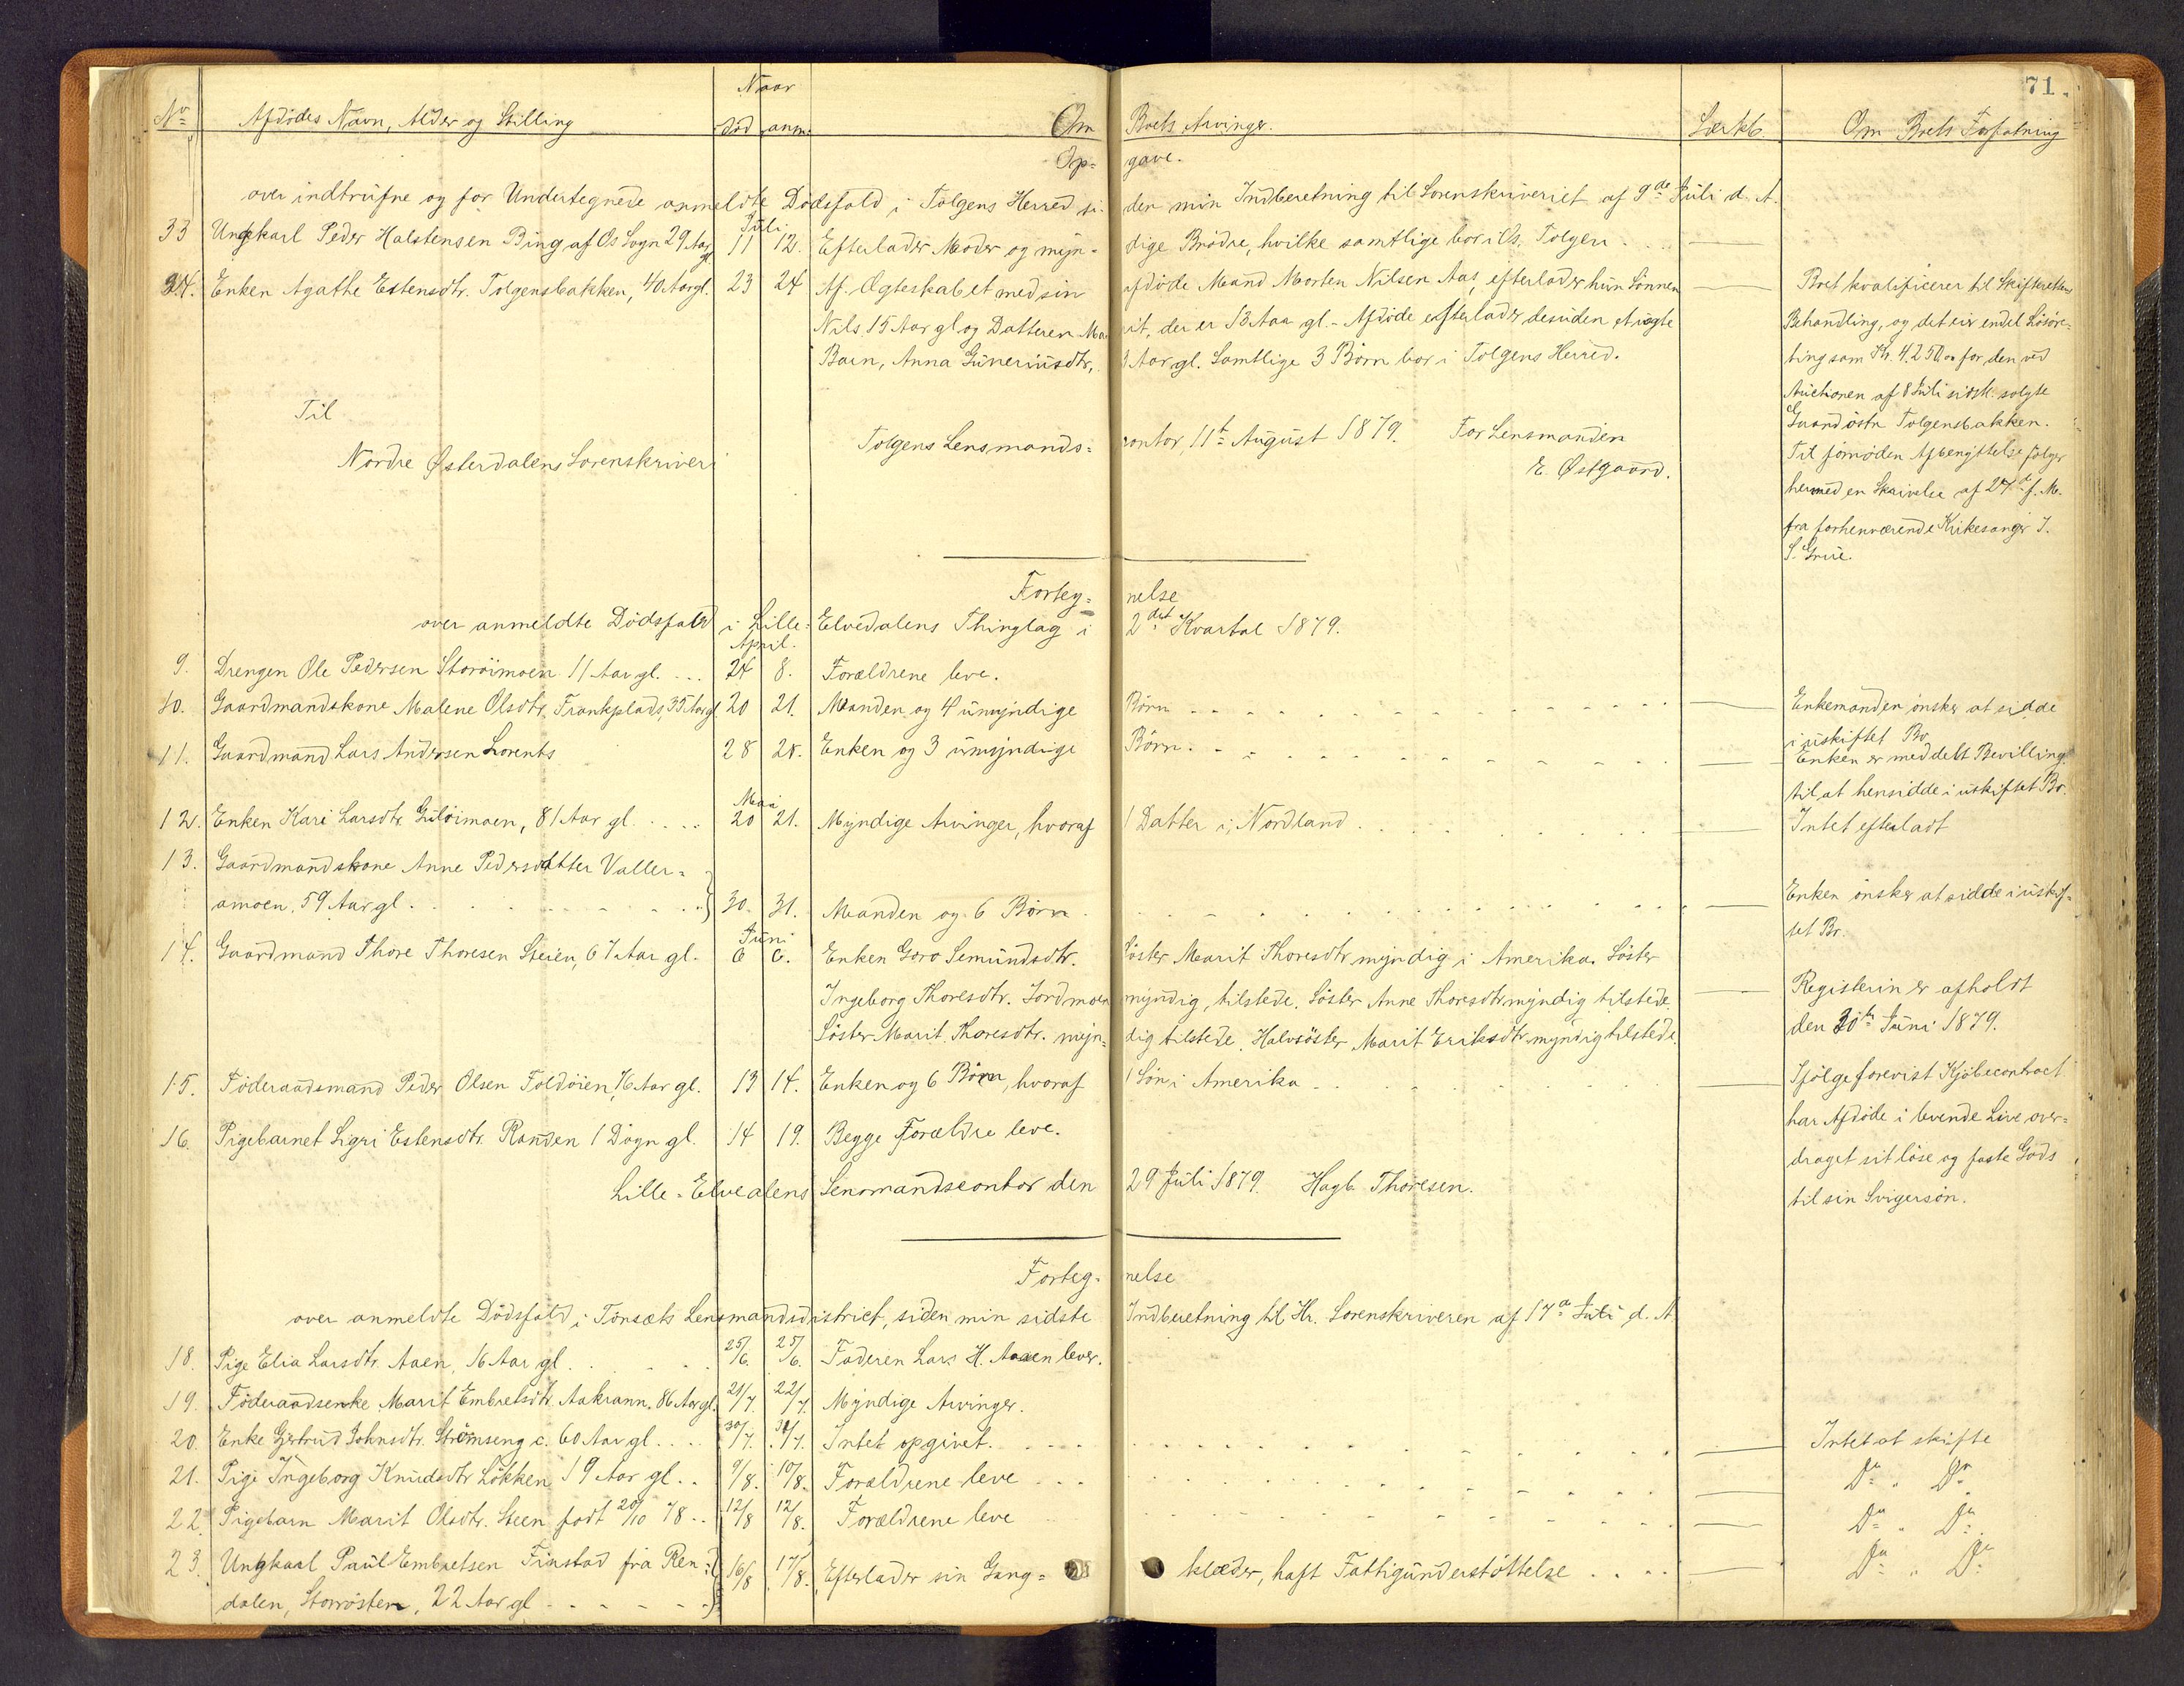 71.
No Afdödes Navn, Alder og Stilling Naar död anm. Om Boets Arvinger. Særkb. Om Boets Forfatning
Op= gave.
over indtrufne og for Undertegnede anmeldte Dödsfald i Tolgens Herred si- den min Indberetning til Sorenskriveriet af 9de Juli d. A.
Juli
33 Ungkarl Peder Halstensen Bing af Os Sogn 29 Aar gl 11 12. Efterlader Moder og myn- dige Brödre, hvilke samtlige bor i Os, Tolgen. . . .
34. Enken Agathe Estensdtr. Tolgensbakken, 40 Aar gl. 23 24 Af Ægteskabet med sin afdöde Mand Morten Nilsen Aas, efterlader hun Sönnen
Nils 15 Aar gl og Datteren Ma- rit, der er 13 Aar gl. - Afdöde efterlader desuden et uægte
Barn, Anna Guneriusdtr, 1 Aar gl. Samtlige 3 Börn bor i Tolgens Herred.
Boet kvalificerer til Skifterettens
Behandling, og det eier endel Lösöre-
ting som Kr. 4,250,00 for den ved
Auctionen af 8 Juli sidstl. solgte
Gaard östr. Tolgensbakken.
Til fornöden Afbenyttelse fölger
hermed en Skrivelse af 24de f. M.
fra forhenværende Kirkesanger J.
S. Grue.
Til
Nordre Østerdalens Sorenskriveri
Tolgens Lensmands= contor, 11te August 1879. For Lensmanden
E. Østgaard.
Forteg= nelse
over anmeldte Dödsfald i Lille= Elvedalens Thinglag i 2det Kvartal 1879.
April.
9. Drengen Ole Pedersen Storöimoen 11 Aar gl. . . . 24 8. Forældrene leve.
10. Gaardmandskone Malene Olsdtr. Frankplads, 35 Aar gl 20 21. Manden og 4 umyndige Börn Enkemanden önsker at sidde
i uskiftet Bo
11. Gaardmand Lars Andersen Lorents 28 28. Enken og 3 umyndige Börn. Enken er meddelt Bevilling
til at hensidde i uskiftet Bo.
Mai
12. Enken Kari Larsdtr. Gulöimoen, 81 Aar gl. . . . . 20 21. Myndige Arvinger, hvoraf 1 Datter i Nordland Intet efterladt
13. Gaardmandskone Anne Pedersdatter Valler=
amoen, 59 Aar gl. 30. 31. Manden og 6 Börn Enken önsker at sidde i uskif=
tet Bo.
Juni
14. Gaardmand Thore Thoresen Steien, 67 Aar gl. 6 6. Enken Goro Semundsdtr. Söster Marit Thoresdtr myndig i Amerika. Söster
Ingeborg Thoresdtr. Jordmoen myndig, tilstede. Söster Anne Thoresdtr myndig tilstede
Söster Marit Thoresdtr. myn= dig tilstede. Halvsöster Marit Eriksdtr myndig tilstede.
Registerin er afholdt
den 30te Juni 1879.
15. Föderaadsmand Peder Olsen Foldöien, 76 Aar gl. 13 14. Enken og 6 Börn, hvoraf 1 Sön i Amerika
Ifölge forevist Kjöbecontract
har Afdöde i levende Live over=
draget sit löse og faste Gods
til sin Svigersön.
16. Pigebarnet Sigri Estensdtr. Randen 1 Dögn gl. 14 19. Begge Forældre leve.
Lille=Elvedalens Lensmandscontor den 29 Juli 1879. Hagb. Thoresen.
Forteg- nelse
over anmeldte Dödsfald i Tönsæts Lensmandsdistrict, siden min sidste Indberetning til Hr. Sorenskriveren af 17de Juli d. A.
18. Pige Elia Larsdtr. Aaen, 16 Aar gl. 25/6. 25/6. Faderen Lars H. Aaen lever.
19. Föderaadsenke Marit Embretsdtr. Aakrann. 86 Aar gl. 21/7. 22/7. Myndige Arvinger.
20. Enke Gjertrud Johnsdtr. Strömseng c. 60 Aar gl. . . . 30/7. 31/7. Intet opgivet. Intet at skifte
21. Pige Ingeborg Knudsdtr Lökken 19 Aar gl. . 9/8. 10/8. Forældrene leve Do " Do
22. Pigebarn Marit Olsdtr. Steen födt 20/10 78 . . 12/8 12/8. Forældrene leve Do " Do
23. Ungkarl Paul Embretsen Finstad fra Ren= 16/8 17/8. Efterlader sin Gang= klæder, haft Fattigunderstöttelse . . . . Do " Do
dalen, Storrösten, 22 Aar gl